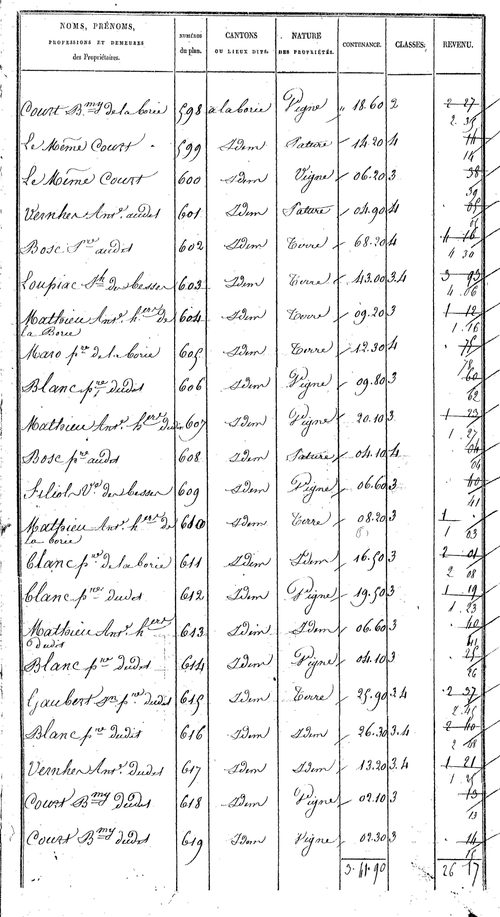 NOMS, PRÉNOMS, PROFESSIONS ET DEMEURES des Propriétaires. NUMÉROS du plan. CANTONS OU LIEUX DITS. NATURE DES PROPRIÉTÉS. CONTENANCE. CLASSES. REVENU.
Court Bmy de la borie 598 a la borie Vigne 18.60 2 2 27
2.35
Le Même Court 599 Idem Pature 14.20 4 14
14
Le Même Court 600 Idem Vigne 06.20 3 38
39
Vernher Ant. audit 601 Idem Pature 04.90 4 05
Bosc Pre audit 602 Idem Terre 68.20 4 4 16
4 30
Loupiac 603 Idem Terre 43.00 3.4 3 93
4 06
Mathieu Ant. hers de 604 Idem Terre 09.20 3 1 12
la Borie 1.16
Maro pre de la borie 605 Idem Terre 12.30 4 75
78
Blanc pre dudit 606 Idem Vigne 09.80 3 60
62
Mathieu Ant. hers dudit 607 Idem Vigne 20.10 3 1 23
1.27
Bosc pre audit 608 Idem Pature 04.10 4 04
04
Filiol Ve de besser 609 Idem Vigne 06.60 3 40
41
Mathieu Ant. hers de 610 Idem Terre 08.20 3 1
la borie 1 03
Blanc pre de la borie 611 Idem Idem 16.50 3 2 01
2 08
Blanc pre dudit 612 Idem Vigne 19.50 3 1 19
1.23
Mathieu Ant. hers 613 Idem Idem 06.60 3 40
dudit 41
Blanc pre dudit 614 Idem Vigne 04.10 3 25
26
Gaubert pre dudit 615 Idem Terre 25.90 3.4 2 37
2.45
Blanc pre dudit 616 Idem Idem 26.30 3.4 2 40
2 48
Vernher Ant. Dudit 617 Idem Idem 13.20 3.4 1 21
1 25
Court Bmy Dudit 618 Idem Vigne 02.10 3 13
13
Court Bmy dudit 619 Idem Vigne 02.30 3 14
15
3.41.90 26 17